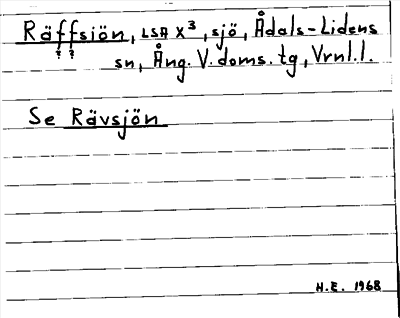 Räffsiön, LSA X³, sjö, Ådals-Lidens
? ?
sn, Ång. V. doms. tg, Vrnl. l.
Se Rävsjön
H.E. 1968